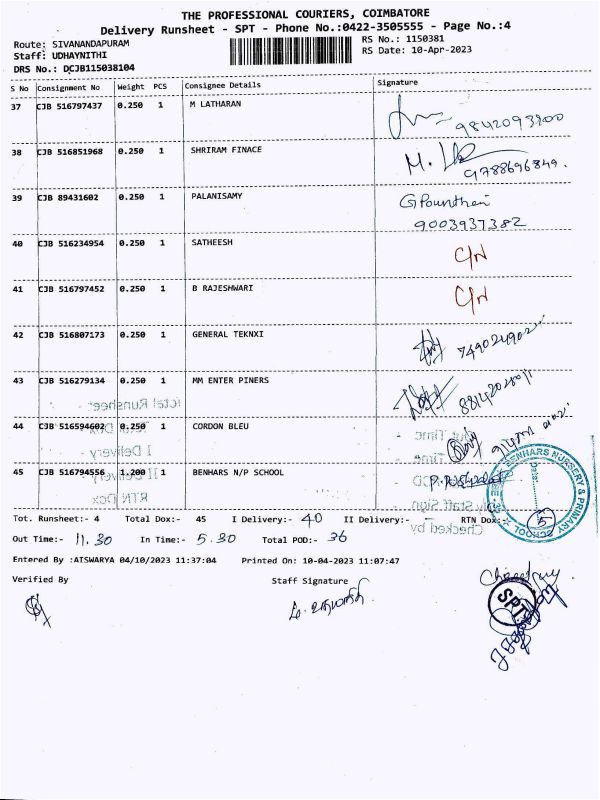 THE PROFESSIONAL COURIERS, COIMBATORE
Delivery Runsheet - SPT - Phone No.:0422-3505555 - Page No.:4
Route: SIVANANDAPURAM
RS No.: 1150381
Staff: UDHAYNITHI
RS Date: 10-Apr-2023
DRS No.: DCJB115038104
S No Consignment No Weight PCS Consignee Details Signature
37 CJB 516797437 0.250 1 M LATHARAN
9842093900
38 CJB 516851968 0.250 1 SHRIRAM FINACE
9788696849.
39 CJB 89431602 0.250 1 PALANISAMY
9003937382
40 CJB 516234954 0.250 1 SATHEESH C/N
41 CJB 516797452 0.250 1 B RAJESHWARI C/N
42 CJB 516807173 0.250 1 GENERAL TEKNXI
43 CJB 516279134 0.250 1 MM ENTER PINERS
44 CJB 516594602 0.250 1 CORDON BLEU
45 CJB 516794556 1.200 1 BENHARS N/P SCHOOL
BENHARS NURSERY & PRIMARY SCHOOL
Date
5
Tot. Runsheet:- 4 Total Dox:- 45 I Delivery:- 40 II Delivery:- RTN Dox:-
Out Time:- 11.30 In Time:- 5.30 Total POD:- 36
Entered By :AISWARYA 04/10/2023 11:37:04 Printed On: 10-04-2023 11:07:47
Verified By Staff Signature
SPT